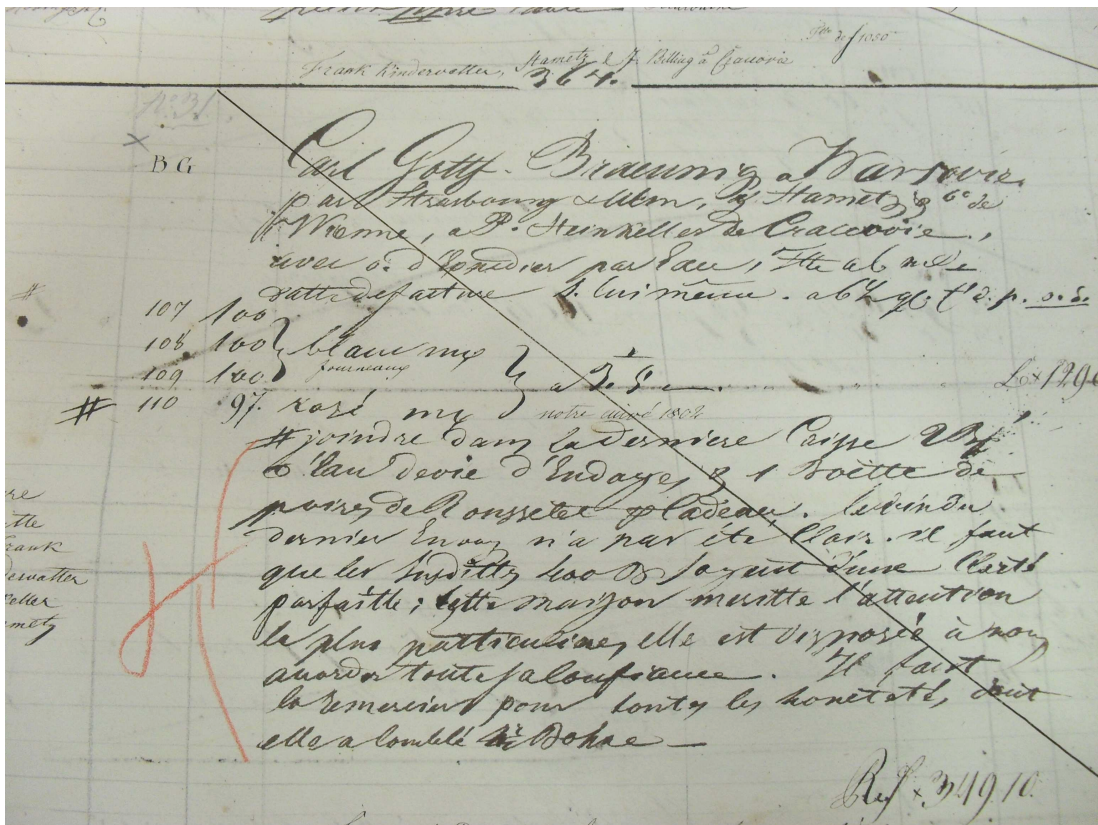 Frank Kinderwatter, Hametz & J. Billing à Cracovie
de f 1030
364.
No. 31.
B G
Carl Gottf. Braeunig a Warsovie
par Strasbourg & Ulm, Hametz & Ce de
Vienne, a P. Steinkeller de Cracovie,
avec o. d'Expédier par Eau, Tte a 6 m/ de
datte de facture s. lui même.
107 100
108 100 } blanc mx
fourneaux
109 100 } a
110 97. rosé mx
notre cuvé 1802
# joindre dans la derniere Caisse
d'Eau de vie d'Endaye, & 1 Boëtte de
poires de Rousselet p Cadeau. le vin du
dernier Envoy n'a pas été Clair. il faut
que les susdittes 400 Bs soyent d'une Clarté
parfaitte; Cette maison meritte l'attention
la plus particuliere, elle est disposée à nous
accorder toute sa Confiance. Il faut
la remercier pour toutes les honetetés, dont
elle a Comblé Mr Bohne —
Rx 349.10.
Frank